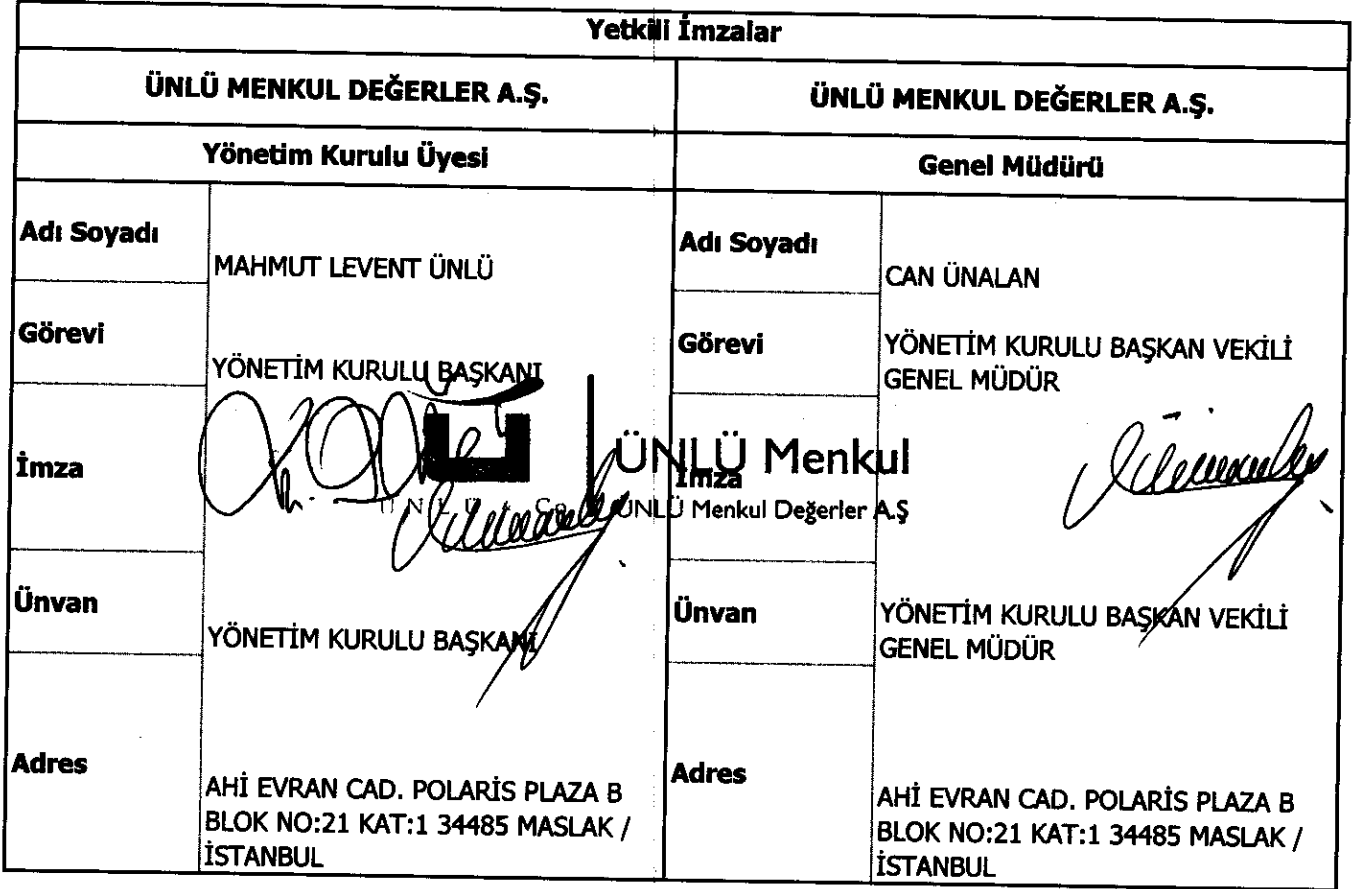 Yetkili İmzalar
ÜNLÜ MENKUL DEĞERLER A.Ş.
ÜNLÜ MENKUL DEĞERLER A.Ş.
Yönetim Kurulu Üyesi
Genel Müdürü
Adı Soyadı
MAHMUT LEVENT ÜNLÜ
Adı Soyadı
CAN ÜNALAN
Görevi
YÖNETİM KURULU BAŞKANI
Görevi
YÖNETİM KURULU BAŞKAN VEKİLİ
GENEL MÜDÜR
İmza
ÜNLÜ Menkul
İmza
ÜNLÜ & Co
ÜNLÜ Menkul Değerler A.Ş
Ünvan
YÖNETİM KURULU BAŞKANI
Ünvan
YÖNETİM KURULU BAŞKAN VEKİLİ
GENEL MÜDÜR
Adres
AHİ EVRAN CAD. POLARİS PLAZA B
BLOK NO:21 KAT:1 34485 MASLAK /
İSTANBUL
Adres
AHİ EVRAN CAD. POLARİS PLAZA B
BLOK NO:21 KAT:1 34485 MASLAK /
İSTANBUL